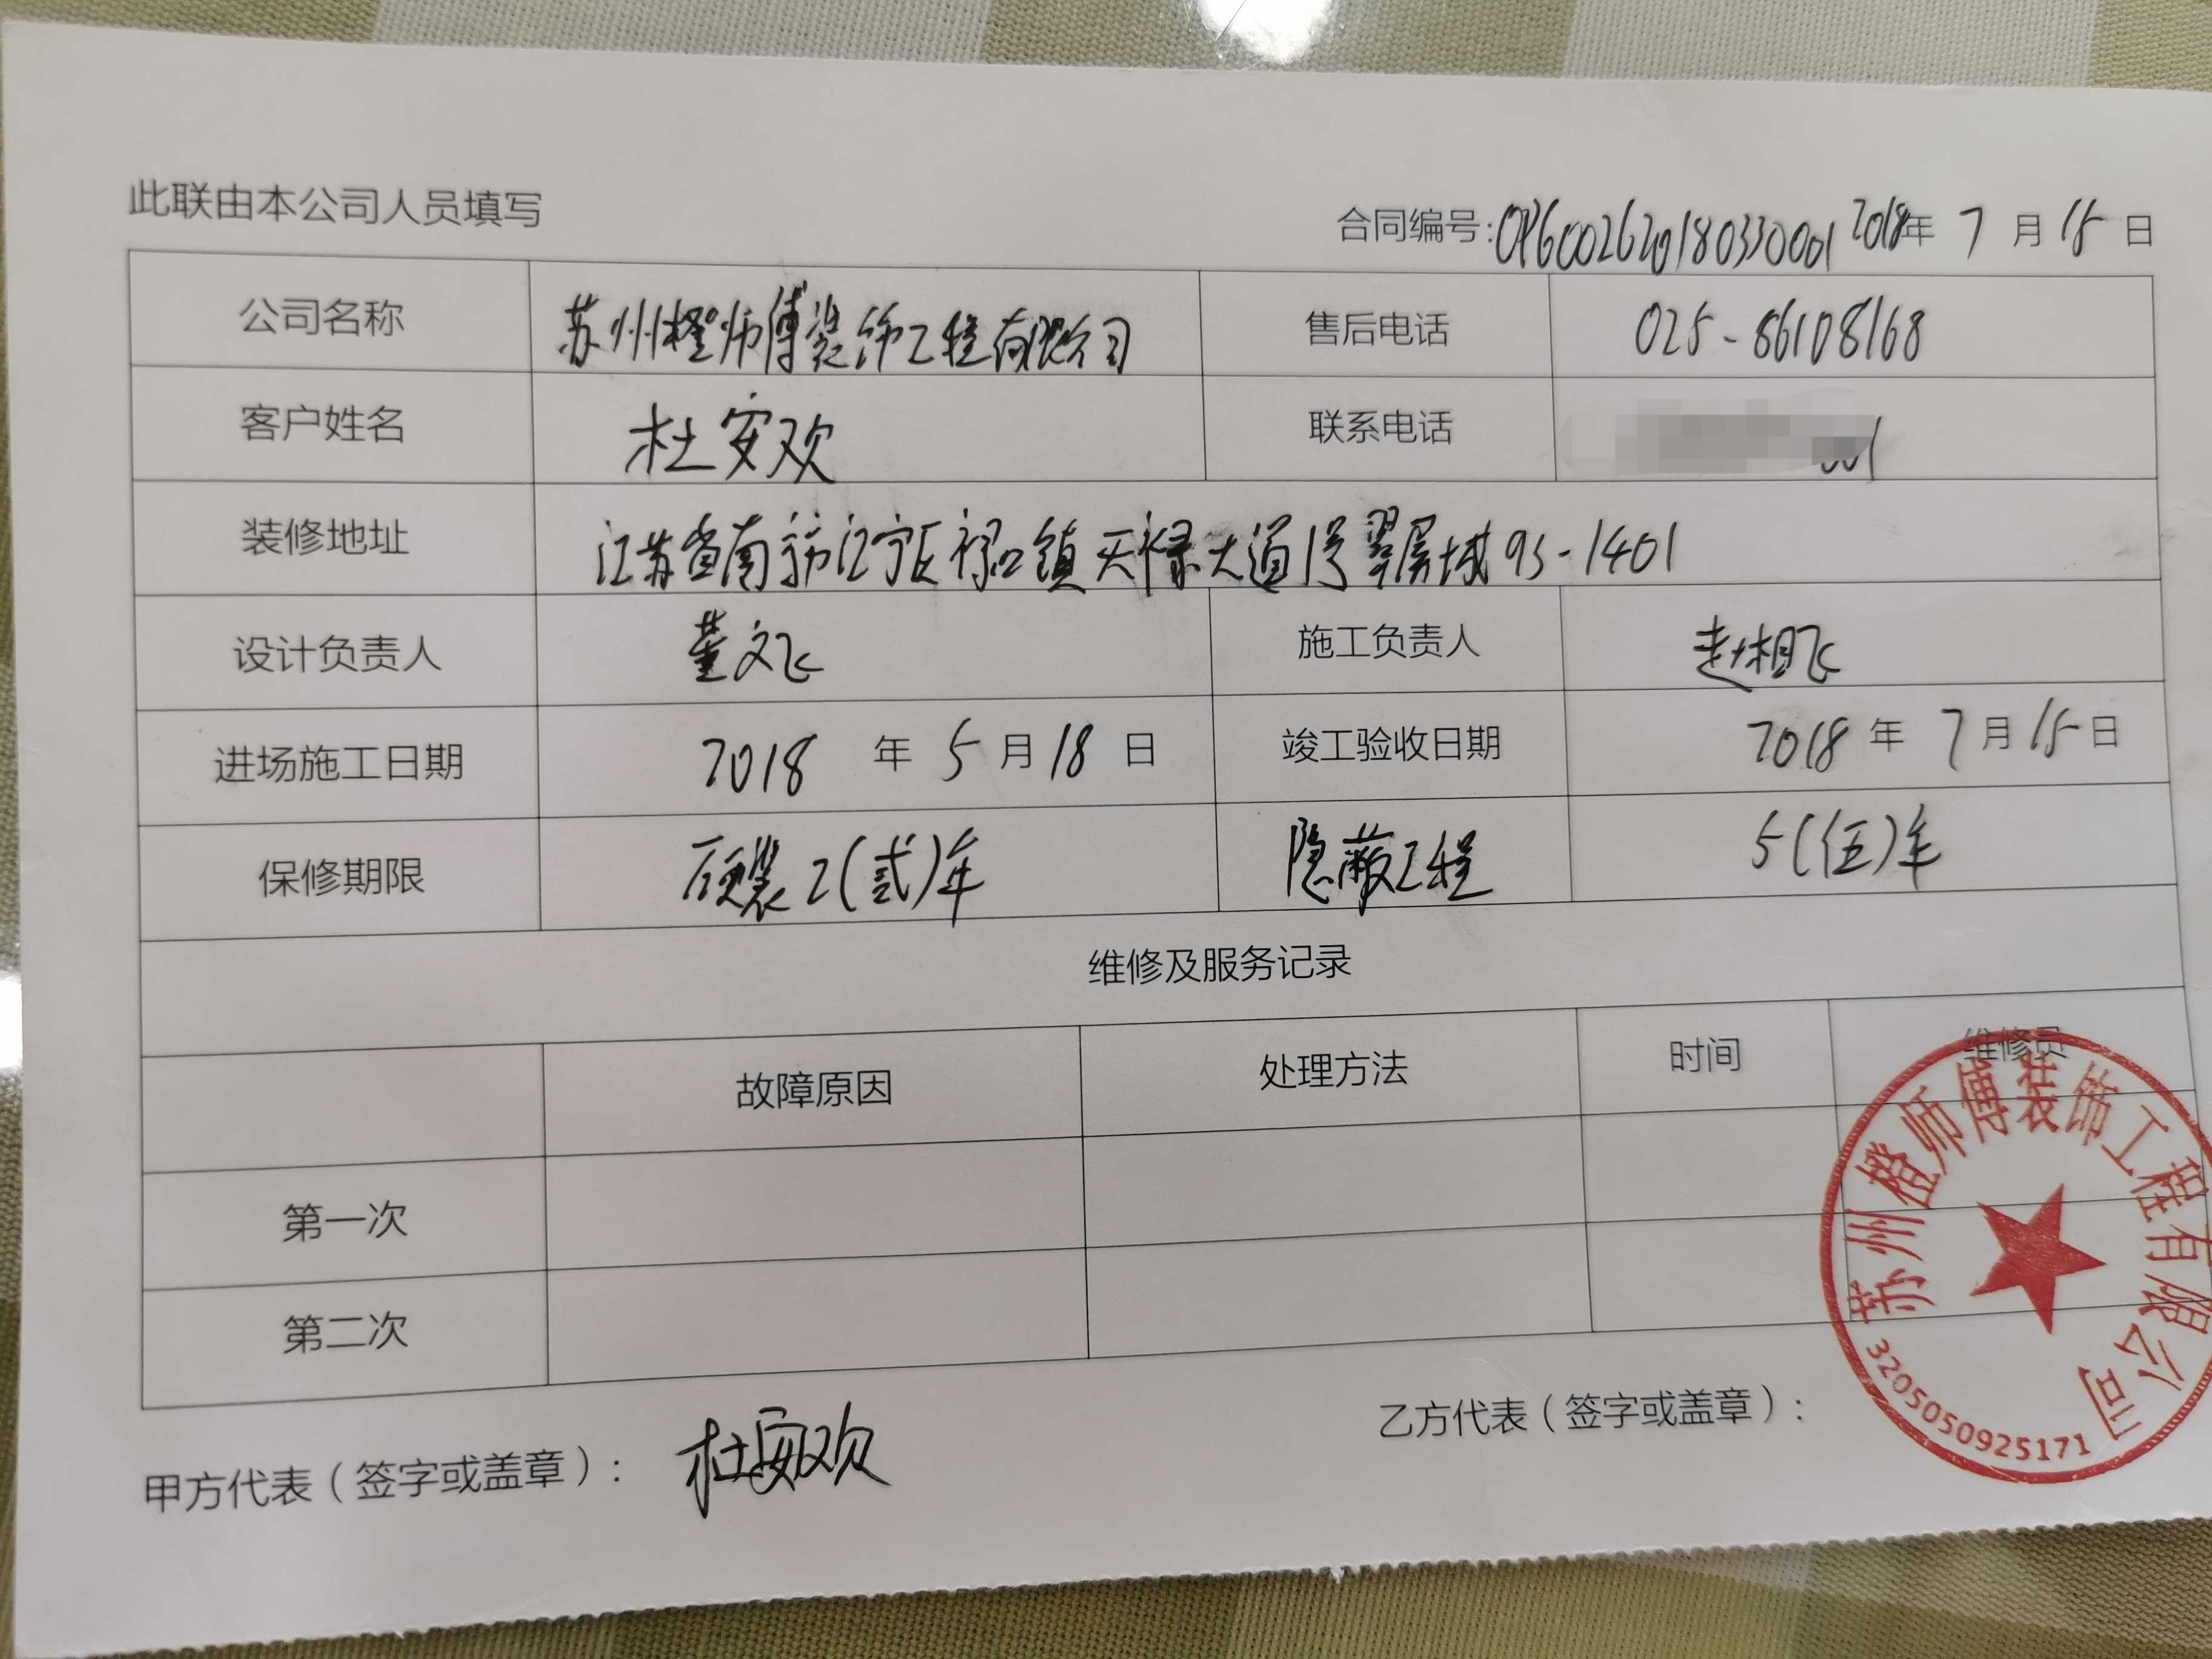 此联由本公司人员填写
合同编号: 2018年 7月 15日
公司名称 苏州橙师傅装饰工程有限公司 售后电话 025-86108168
客户姓名 杜安欢 联系电话
装修地址 江苏省南京市江宁区禄口镇天禄大道1号翠屏城93-1401
设计负责人 董文飞 施工负责人 赵相飞
进场施工日期 2018 年 5 月 18 日 竣工验收日期 2018 年 7 月 15 日
保修期限 硬装2(贰)年 隐蔽工程 5(伍)年
维修及服务记录
故障原因 处理方法 时间 维修员
第一次
第二次
甲方代表（签字或盖章）： 杜安欢 乙方代表（签字或盖章）：
苏州橙师傅装饰工程有限公司
3205050925171